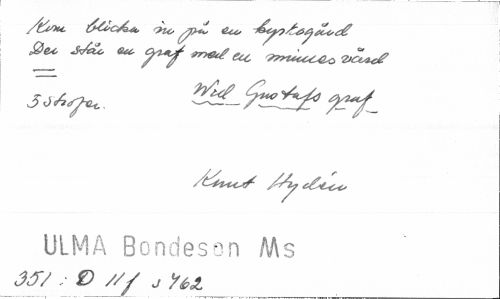 Kom blicka in på en kyrkogård
Der står en graf med en minnesvård
5 strofer.
Wid Gustafs graf
Knut Hydén
ULMA Bondeson Ms
351 : D II f s 762